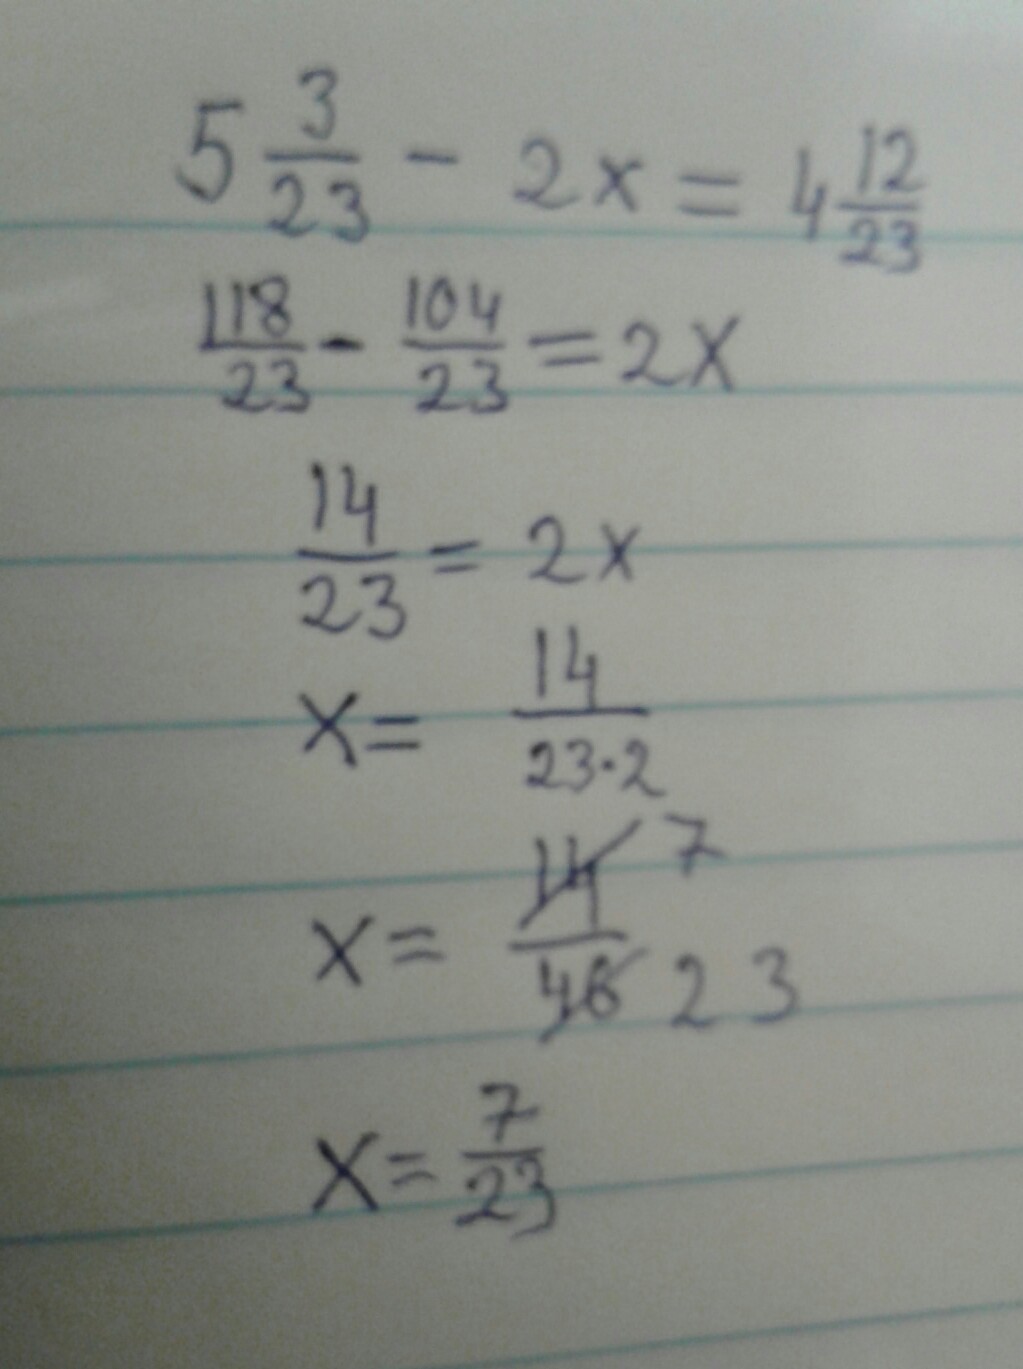 5 3/23 - 2x = 4 12/23
118/23 - 104/23 = 2x
14/23 = 2x
x = 14/23·2
x = 14/46 7 23
x = 7/23